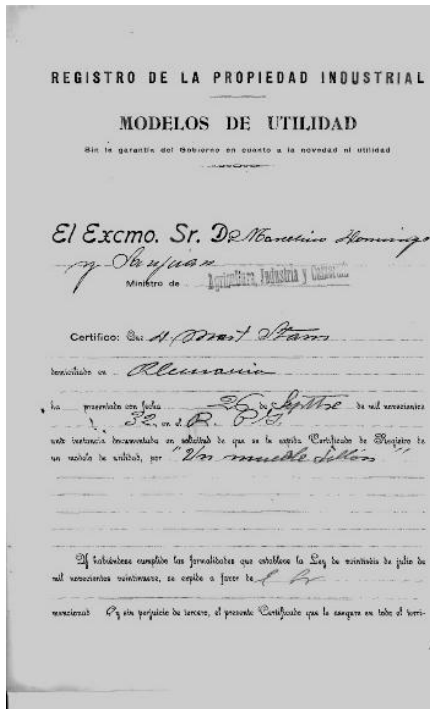 REGISTRO DE LA PROPIEDAD INDUSTRIAL
MODELOS DE UTILIDAD
Sin la garantía del Gobierno en cuanto a la novedad ni utilidad
El Excmo. Sr. D. Marcelino Domingo
y Sanjuán
Ministro de Agricultura, Industria y Comercio
Certifico: Que D. Mart Stam
domiciliado en Alemania
ha presentado con fecha 26 de Septbre de mil novecientos
32 en el R. P. I.
una instancia documentada en solicitud de que se le expida Certificado de Registro de
un modelo de utilidad, por "Un mueble Sillón"
Y habiéndose cumplido las formalidades que establece la Ley de veintiséis de julio de
mil novecientos veintinueve, se expide a favor de
mencionad y sin perjuicio de tercero, el presente Certificado que le asegura en todo el terri-